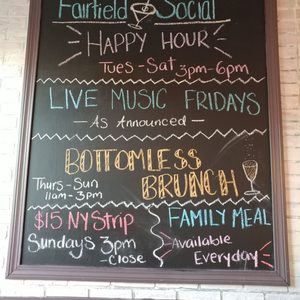 Fairfield Social
HAPPY HOUR
Tues-Sat 3pm-6pm
LIVE MUSIC FRIDAYS
- As Announced -
BOTTOMLESS
BRUNCH
Thurs-Sun
11am-3pm
$15 NY Strip
Sundays 3pm
-Close
FAMILY MEAL
Available
Everyday